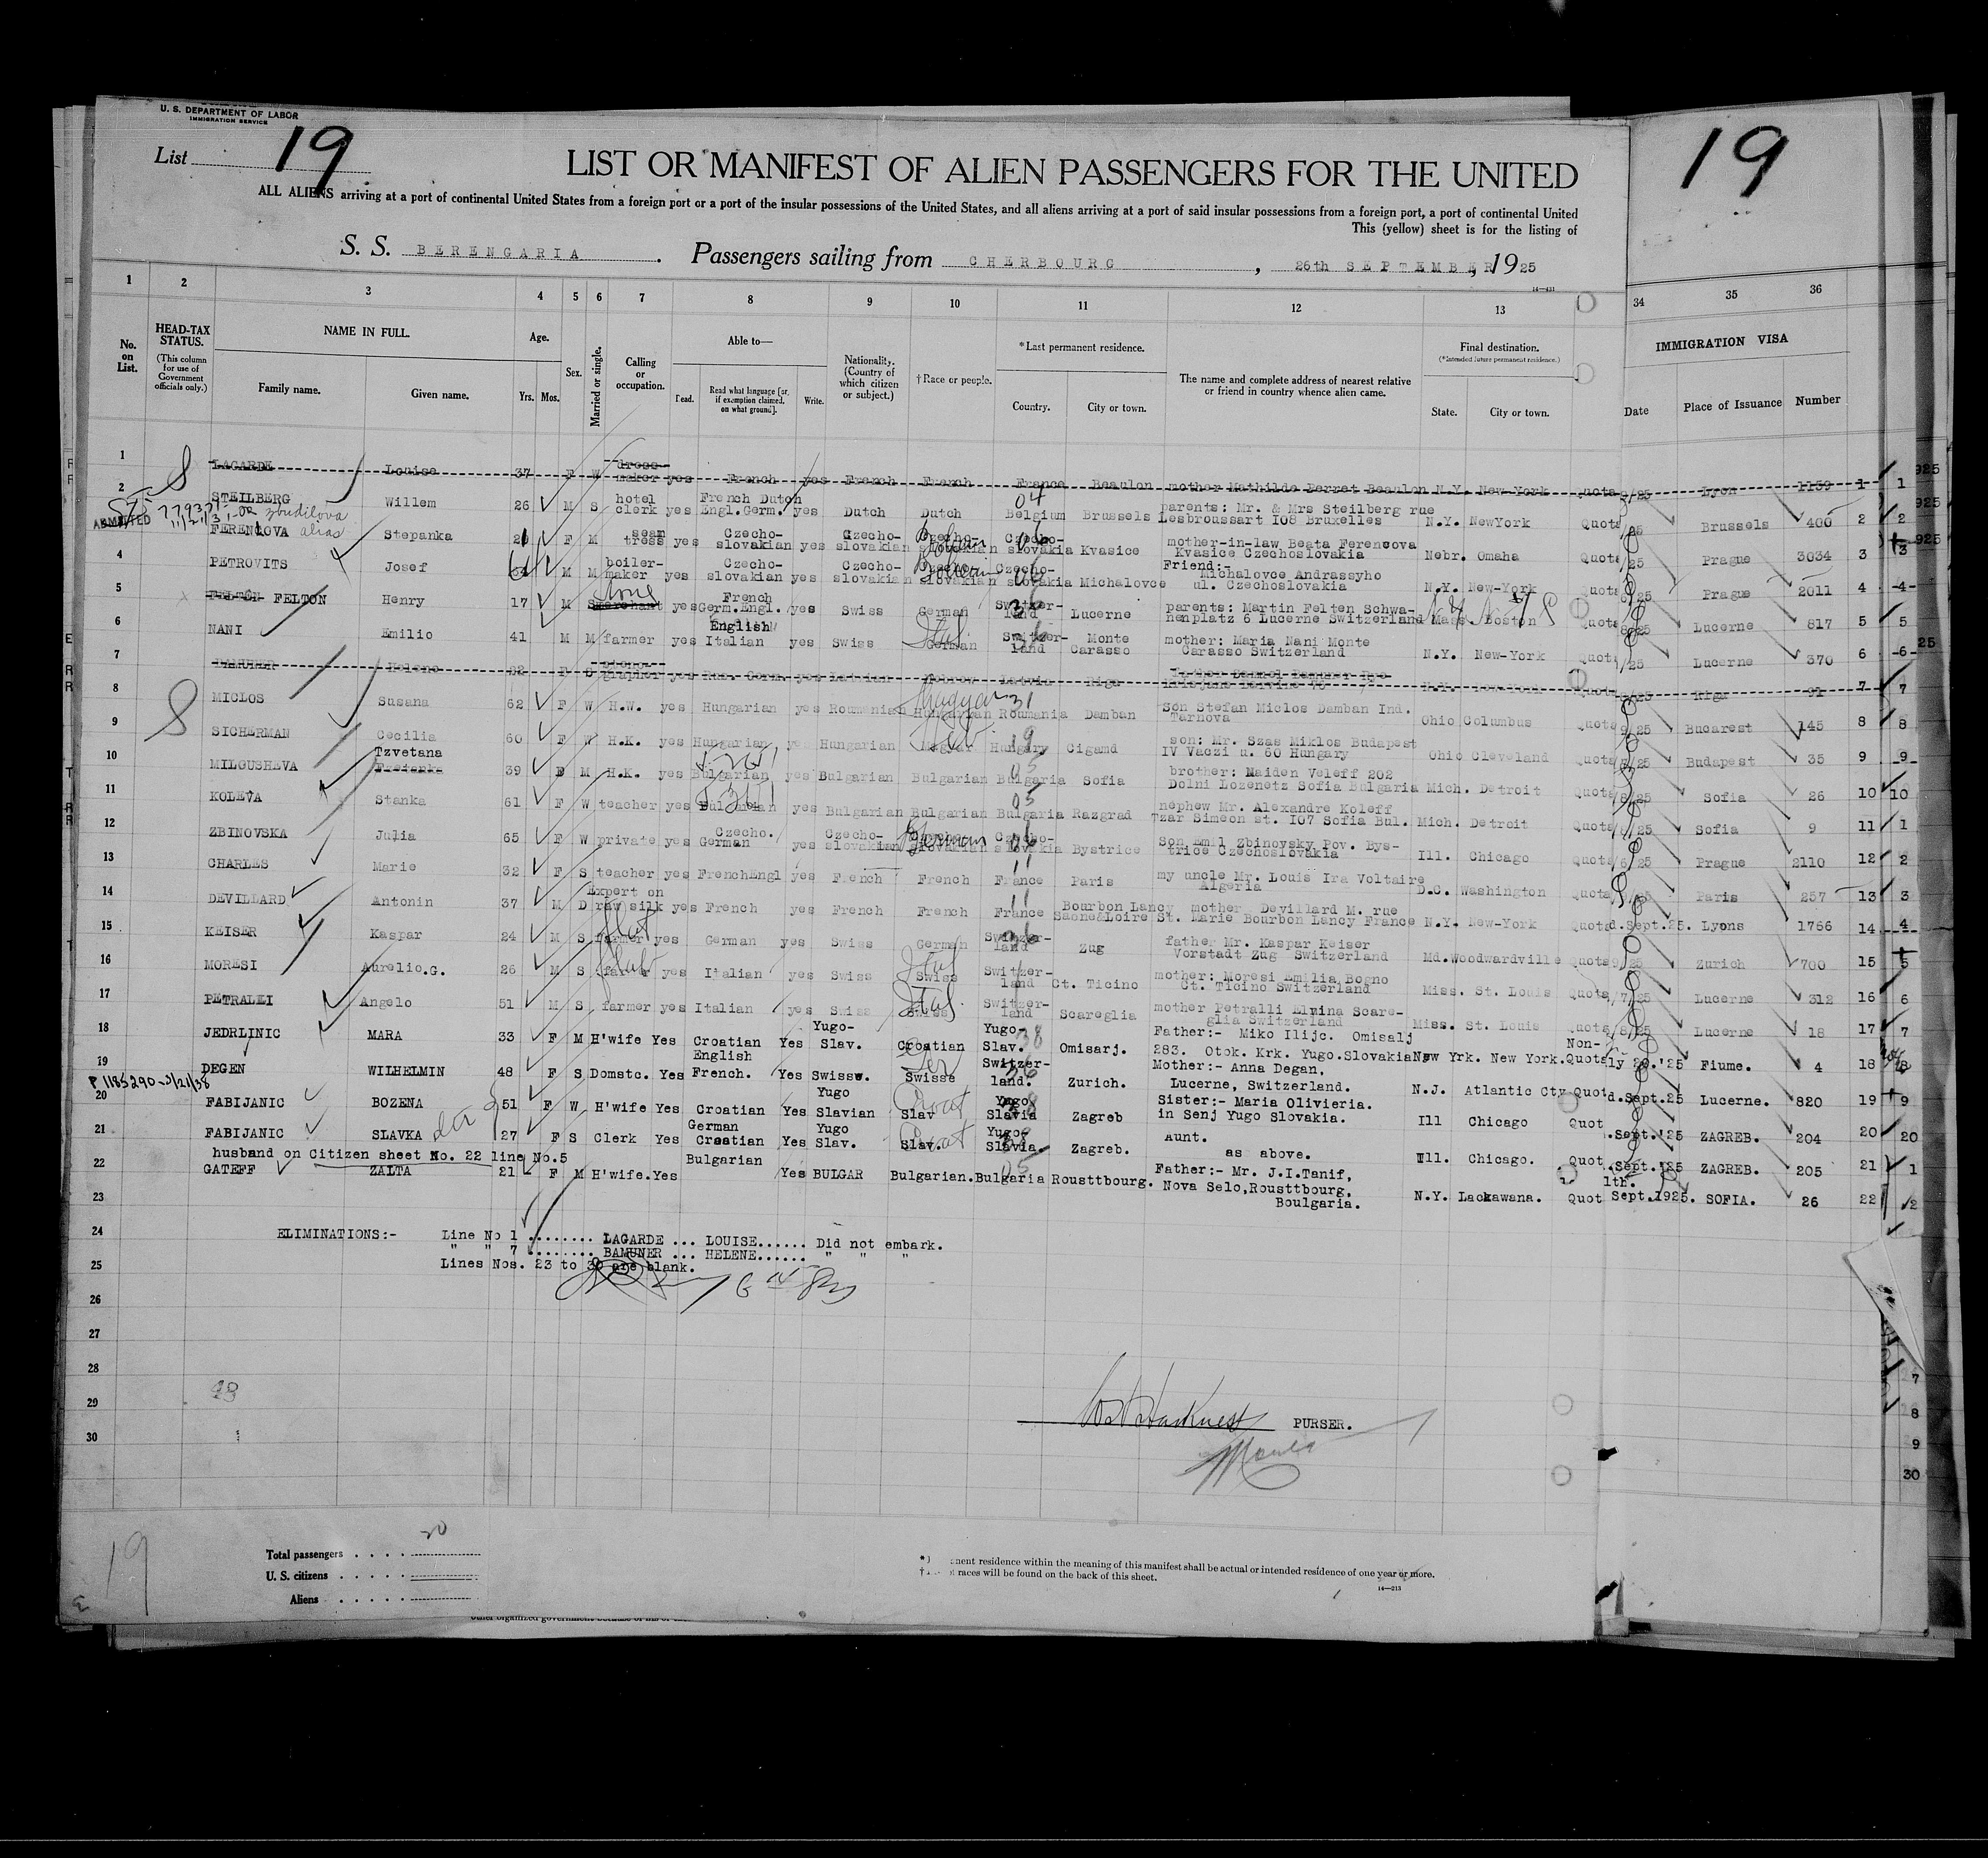 U. S. DEPARTMENT OF LABOR
IMMIGRATION SERVICE
List 19
19
LIST OR MANIFEST OF ALIEN PASSENGERS FOR THE UNITED
ALL ALIENS arriving at a port of continental United States from a foreign port or a port of the insular possessions of the United States, and all aliens arriving at a port of said insular possessions from a foreign port, a port of continental United
This (yellow) sheet is for the listing of
S. S. BERENGARIA. Passengers sailing from CHERBOURG, 26th SEPTEMBER, 1925
14—431
1 2 3 4 5 6 7 8 9 10 11 12 13 34 35 36
No. on List.
HEAD-TAX STATUS.
(This column for use of Government officials only.)
NAME IN FULL.
Family name. Given name.
Age.
Yrs. Mos.
Sex.
Married or single.
Calling or occupation.
Able to—
Read. Read what language [or, if exemption claimed, on what ground]. Write.
Nationality. (Country of which citizen or subject.)
† Race or people.
* Last permanent residence.
Country. City or town.
The name and complete address of nearest relative or friend in country whence alien came.
Final destination.
(* Intended future permanent residence.)
State. City or town.
IMMIGRATION VISA
Date Place of Issuance Number
1 LAGARDE Louise 37 F W dress-maker yes French yes French French France Beaulon mother Mathilde Perret Beaulon N.Y. New-York Quota /25 Lyon 1159 1
2 STEILBERG Willem 26 M S hotel clerk yes French Dutch Engl.Germ. yes Dutch Dutch Belgium Brussels parents: Mr. & Mrs Steilberg rue Lesbroussart 108 Bruxelles N.Y. NewYork Quota /25 Brussels 400 2
ADMITTED
zbudilova
alias
3 FERENCOVA Stepanka F M seamtress yes Czecho-slovakian yes Czecho-slovakian Czecho-slovakian Czecho-slovakia Kvasice mother-in-law Beata Ferencova Kvasice Czechoslovakia Nebr. Omaha Quota /25 Prague 3034 3
4 PETROVITS Josef M M boiler-maker yes Czecho-slovakian yes Czecho-slovakian Czecho-slovakian Czecho-slovakia Michalovce Friend:- Michalovce Andrassyho ul. Czechoslovakia N.Y. New-York Quota /25 Prague 2011 4
5 FELTEN FELTON Henry 17 M S merchant yes French Germ.Engl. yes Swiss German Switzer-land Lucerne parents: Martin Felten Schwa-nenplatz 6 Lucerne Switzerland Mass Boston Quota /25 Lucerne 817 5
6 NANI Emilio 41 M M farmer yes English Italian yes Swiss German Switzer-land Monte Carasso mother: Maria Nani Monte Carasso Switzerland N.Y. New-York Quota /25 Lucerne 370 6
7 BAMUNER Helene F S steno-grapher yes Rus. Germ. yes Latvian Hebrew Latvia Riga N.Y. New-York Quota /25 Riga 7
8 MICLOS Susana 62 F W H.W. yes Hungarian yes Roumanian Hungarian Magyar Roumania Damban Son Stefan Miclos Damban Ind. Tarnova Ohio Columbus Quota /25 Bucarest 145 8
9 SICHERMAN Cecilia 60 F W H.K. yes Hungarian yes Hungarian Magyar Hungary Cigand son: Mr. Szas Miklos Budapest IV Vaczi u. 60 Hungary Ohio Cleveland Quota /25 Budapest 35 9
10 MILGUSHEVA Tzvetana 39 F M H.K. yes Bulgarian yes Bulgarian Bulgarian Bulgaria Sofia brother: Naiden Veleff 202 Dolni Lozenetz Sofia Bulgaria Mich. Detroit Quota /25 Sofia 26 10
11 KOLEVA Stanka 61 F W teacher yes Bulgarian yes Bulgarian Bulgarian Bulgaria Razgrad nephew Mr. Alexandre Koleff Tzar Simeon st. 107 Sofia Bul. Mich. Detroit Quota /25 Sofia 9 11
12 ZBINOVSKA Julia 65 F W private yes Czecho. German yes Czecho-slovakian German Czecho-slovakia Bystrice Son Emil Zbinovsky Pov. Bys-trice Czechoslovakia Ill. Chicago Quota /25 Prague 2110 12
13 CHARLES Marie 32 F S teacher yes FrenchEngl yes French French France Paris my uncle Mr. Louis Ira Voltaire Algeria D.C. Washington Quota /25 Paris 257 13
14 DEVILLARD Antonin 37 M D Expert on raw silk yes French yes French French France Bourbon Lancy Saone&Loire mother Devillard M. rue St. Marie Bourbon Lancy France N.Y. New-York Quota d.Sept.25. Lyons 1766 14
15 KEISER Kaspar 24 M S farmer yes German yes Swiss German Switzer-land Zug father Mr. Kaspar Keiser Vorstadt Zug Switzerland Md. Woodwardville Quota /25 Zurich 700 15
16 MORESI Aurelio.G. 26 M S farmer yes Italian yes Swiss Swiss Switzer-land Ct. Ticino mother: Moresi Emilia Bogno Ct. Ticino Switzerland Miss. St. Louis Quota /25 Lucerne 312 16
17 PETRALLI Angelo 51 M S farmer yes Italian yes Swiss Swiss Switzer-land Scareglia mother Petralli Elmina Scare-glia Switzerland Miss. St. Louis Quota /25 Lucerne 18 17
18 JEDRLINIC MARA 33 F M H'wife Yes Croatian Yes Yugo-Slav. Croatian Yugo-Slav. Omisarj. Father:- Miko Ilijc. Omisalj 283. Otok. Krk. Yugo.Slovakia New Yrk. New York. Non-Quota ly 20.'25 Fiume. 4 18
19 DEGEN WILHELMIN 48 F S Domstc. Yes English French. Yes Swisse. Swisse Switzer-land. Zurich. Mother:- Anna Degan, Lucerne, Switzerland. N.J. Atlantic Cty Quot d.Sept.25 Lucerne. 820 19
P1185290-3/21/38
20 FABIJANIC BOZENA 51 F W H'wife Yes Croatian Yes Yugo Slavian Slav Croat Yugo Slavia Zagreb Sister:- Maria Olivieria. in Senj Yugo Slovakia. Ill Chicago Quot .Sept.'25 ZAGREB. 204 20
21 FABIJANIC SLAVKA 27 F S Clerk Yes German Croatian Yes Yugo Slav. Slav. Croat Yugo-Slavia Zagreb. Aunt. as above. Ill. Chicago. Quot .Sept.'25 ZAGREB. 205 21
husband on Citizen sheet No. 22 line No.5
22 GATEFF ZALTA 21 F M H'wife. Yes Bulgarian Yes BULGAR Bulgarian. Bulgaria Rousttbourg. Father:- Mr. J.I.Tanif, Nova Selo,Rousttbourg, Boulgaria. N.Y. Lackawana. Quot lth. Sept.1925. SOFIA. 26 22
23
24 ELIMINATIONS:- Line No 1 ........ LAGARDE ... LOUISE...... Did not embark.
" " 7 ........ BAMUNER ... HELENE...... " " "
25 Lines Nos. 23 to 30 are blank.
26
27
28
29
30
PURSER.
19
Total passengers . . . . 20
U. S. citizens . . . . .
Aliens . . . . .
nent residence within the meaning of this manifest shall be actual or intended residence of one year or more.
races will be found on the back of this sheet.
14—213